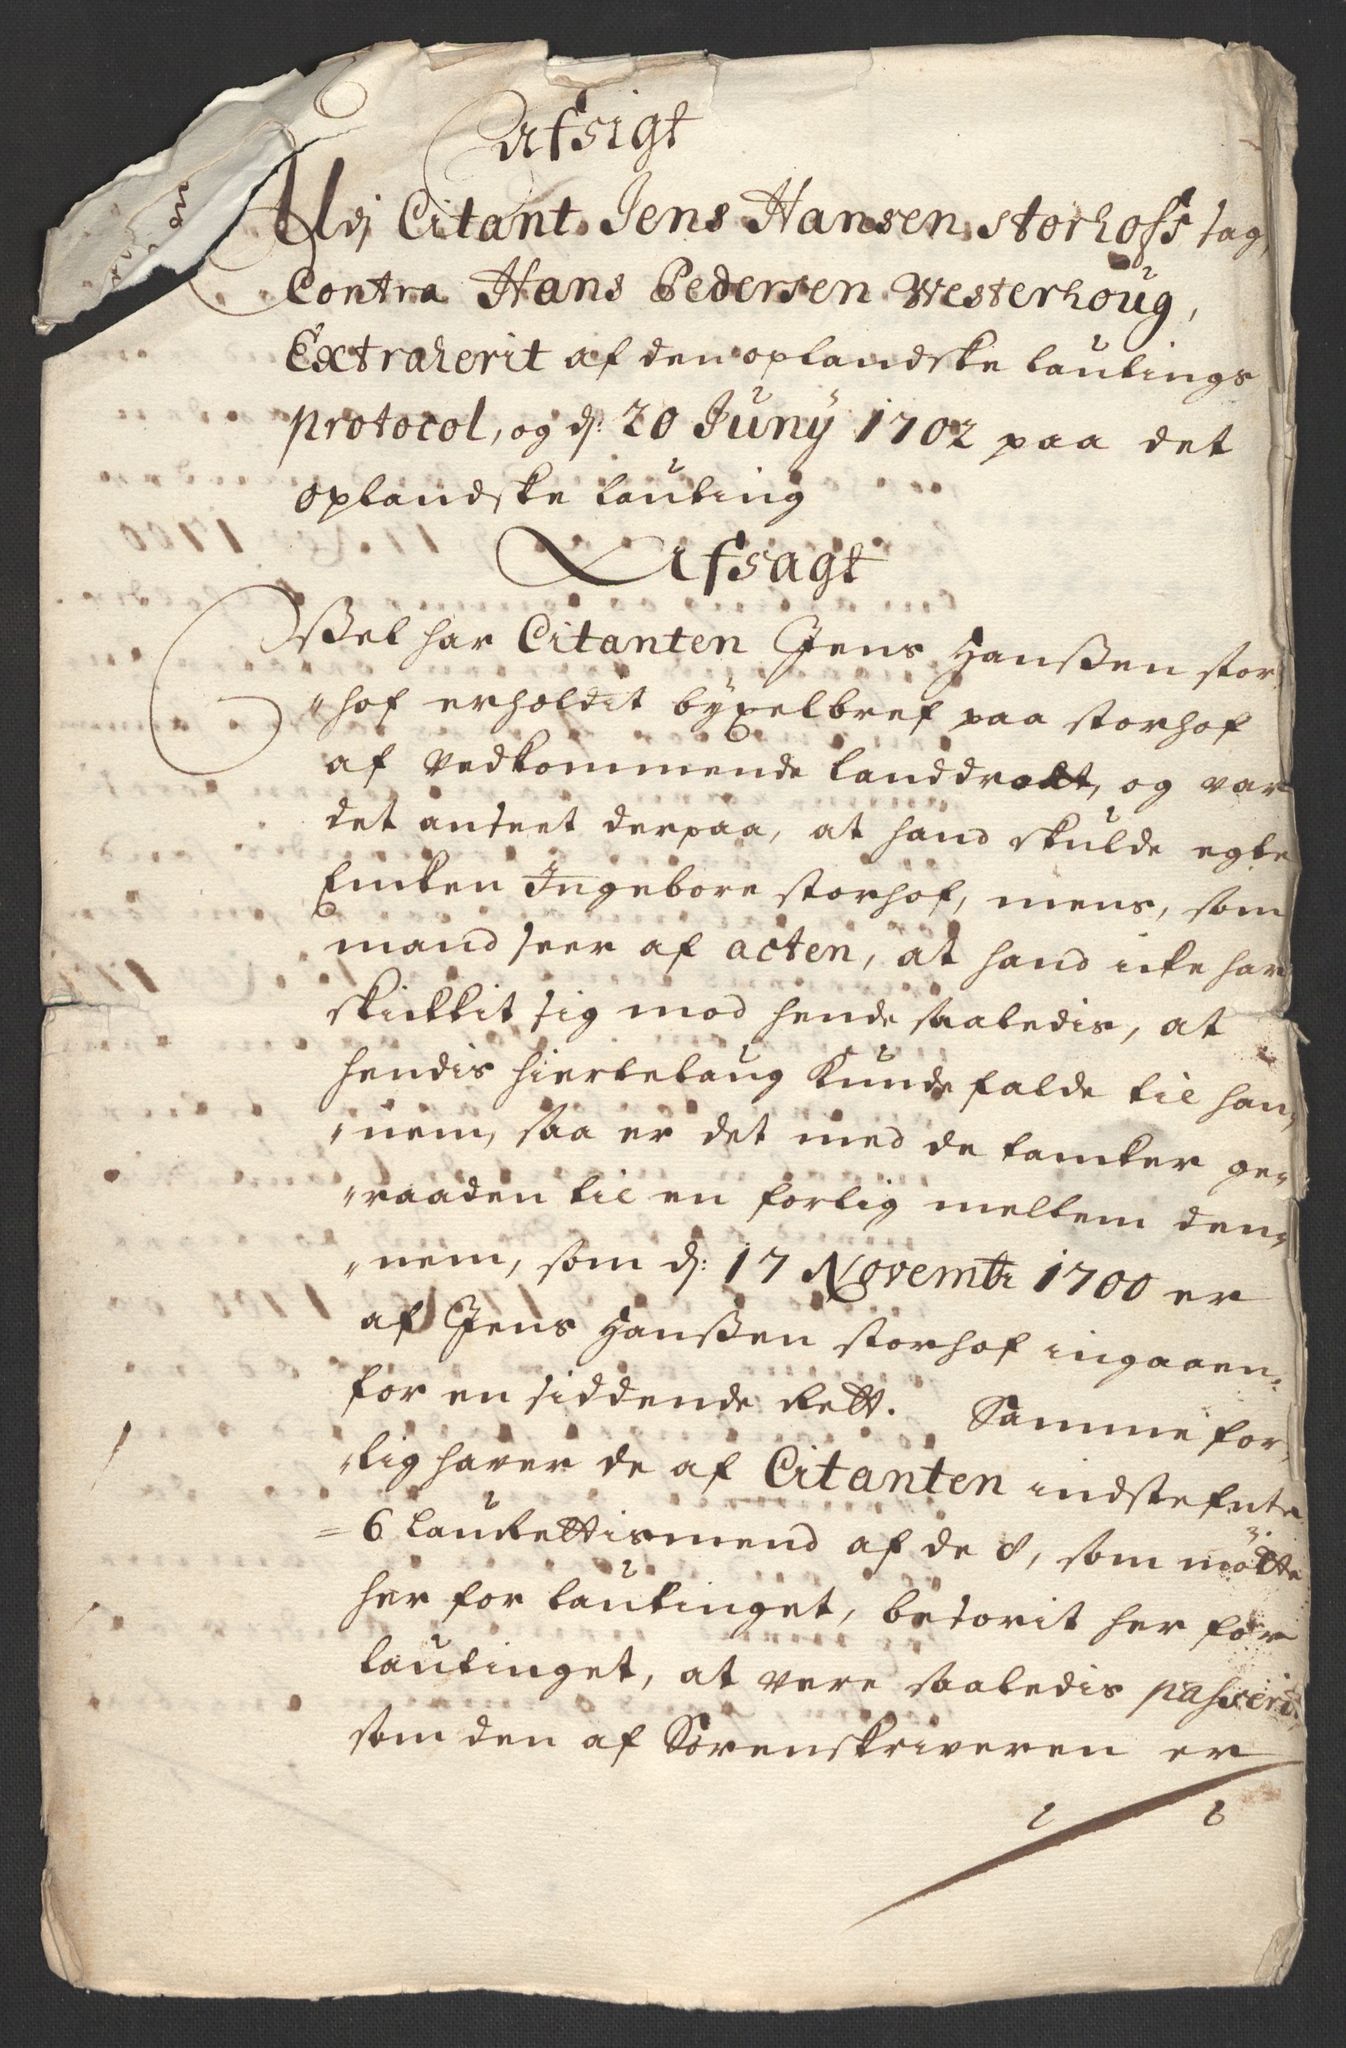 Afsigt
Udj Citant Jens Hansen Storhofs sag,
Contra Hans Pedersen Westerhoug,
Extraherit af den oplandske lautings
protocol, og d: 20 Junij 1702 paa det
oplandske lauting
Afsagt
Vel har Citanten Jens Hanssen stor
"hof erholdit byxelbref paa storhof
af vedkommende landdrott, og var
det anseet derpaa, at hand skulde egte
Encken Ingebore storhof, mens, som
mand seer af acten, at hand icke har
skickit sig mod hende saaledis, at
hendis hiertelaug kunde falde til han,,
"nem, saa er det med de tancker ge,,
"raaden til en forlig mellem den,,
"nem, som d: 17 Novembr 1700 er
af Jens Hanssen storhof ingaaen,
for en siddende Rett. Samme for,,
"lig haver de af Citanten indstefnte
= 6 laurettismend af de 8, som mötte
her for lautinget, besorit her for
lautinget, at vere saaledis passerit
som den af Sorenskriveren er